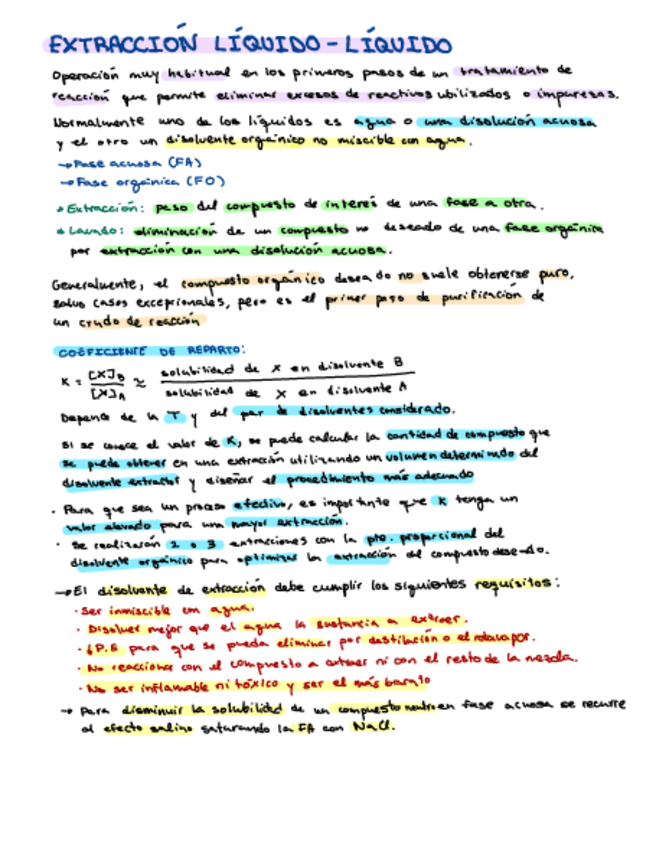 EXTRACCIÓN LÍQUIDO - LÍQUIDO
Operación muy habitual en los primeros pasos de un tratamiento de
reacción que permite eliminar excesos de reactivos utilizados o impurezas.
Normalmente uno de los líquidos es agua o una disolución acuosa
y el otro un disolvente orgánico no miscible con agua.
→ Fase acuosa (FA)
→ Fase orgánica (FO)
* Extracción: paso del compuesto de interés de una fase a otra.
* Lavado: eliminación de un compuesto no deseado de una fase orgánica
por extracción con una disolución acuosa.
Generalmente, el compuesto orgánico deseado no suele obtenerse puro,
salvo casos excepcionales, pero es el primer paso de purificación de
un crudo de reacción
COEFICIENTE DE REPARTO:
K = [X]B / [X]A ≃ solubilidad de X en disolvente B / solubilidad de X en disolvente A
Depende de la T y del par de disolventes considerado.
Si se conoce el valor de K, se puede calcular la cantidad de compuesto que
se puede obtener en una extracción utilizando un volumen determinado del
disolvente extractor y diseñar el procedimiento más adecuado
· Para que sea un proceso efectivo, es importante que K tenga un
valor elevado para una mayor extracción.
· Se realizarán 2 o 3 extracciones con la pte. proporcional del
disolvente orgánico para optimizar la extracción del compuesto deseado.
→ El disolvente de extracción debe cumplir los siguientes requisitos:
· Ser inmiscible con agua.
· Disolver mejor que el agua la sustancia a extraer.
· ↓P.E para que se pueda eliminar por destilación o el rotavapor.
· No reaccionar con el compuesto a extraer ni con el resto de la mezcla.
· No ser inflamable ni tóxico y ser el más barato
→ Para disminuir la solubilidad de un compuesto neutro en fase acuosa se recurre
al efecto salino saturando la FA con NaCl.